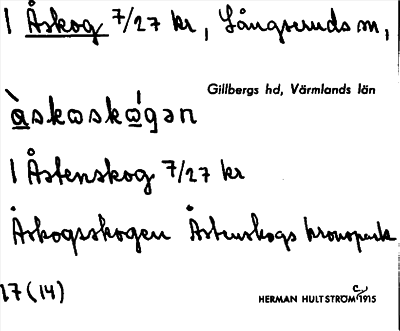 1 Åskog 7/27 kr, Långseruds sn,
Gillbergs hd, Värmlands län
àskωskώgən
1 Åstenskog 7/27 kr
Åskogsskogen Åstenskogs kronopark
17(14)
HERMAN HULTSTRÖM 1915